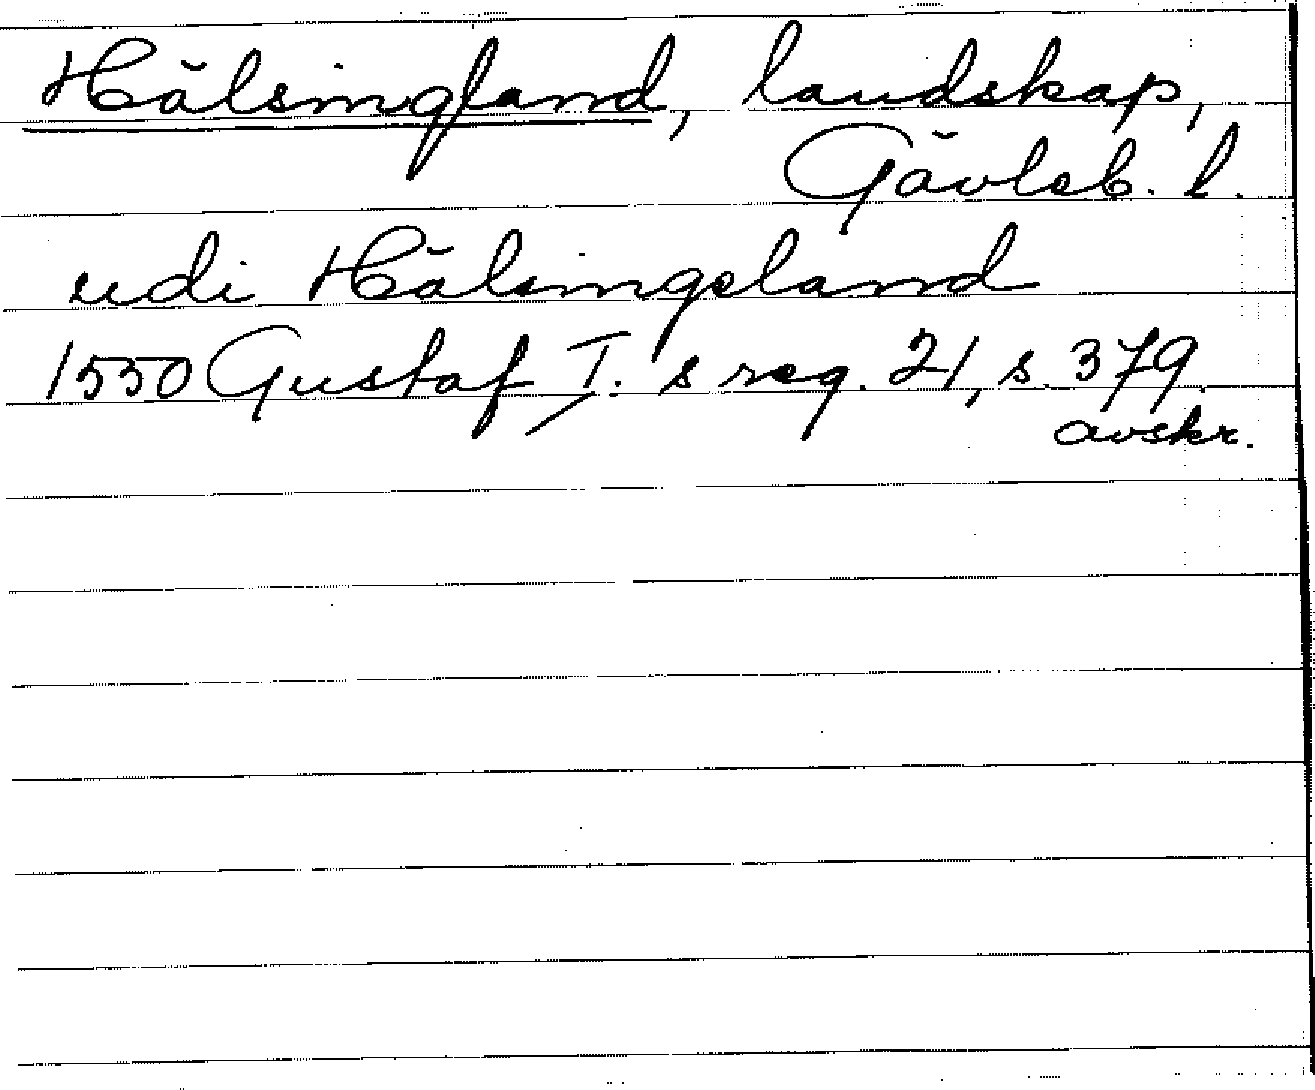 Hälsingland, landskap,
Gävleb. l.
udi Hälsingeland
1550 Gustaf I. s reg. 21, s. 379.
avskr.